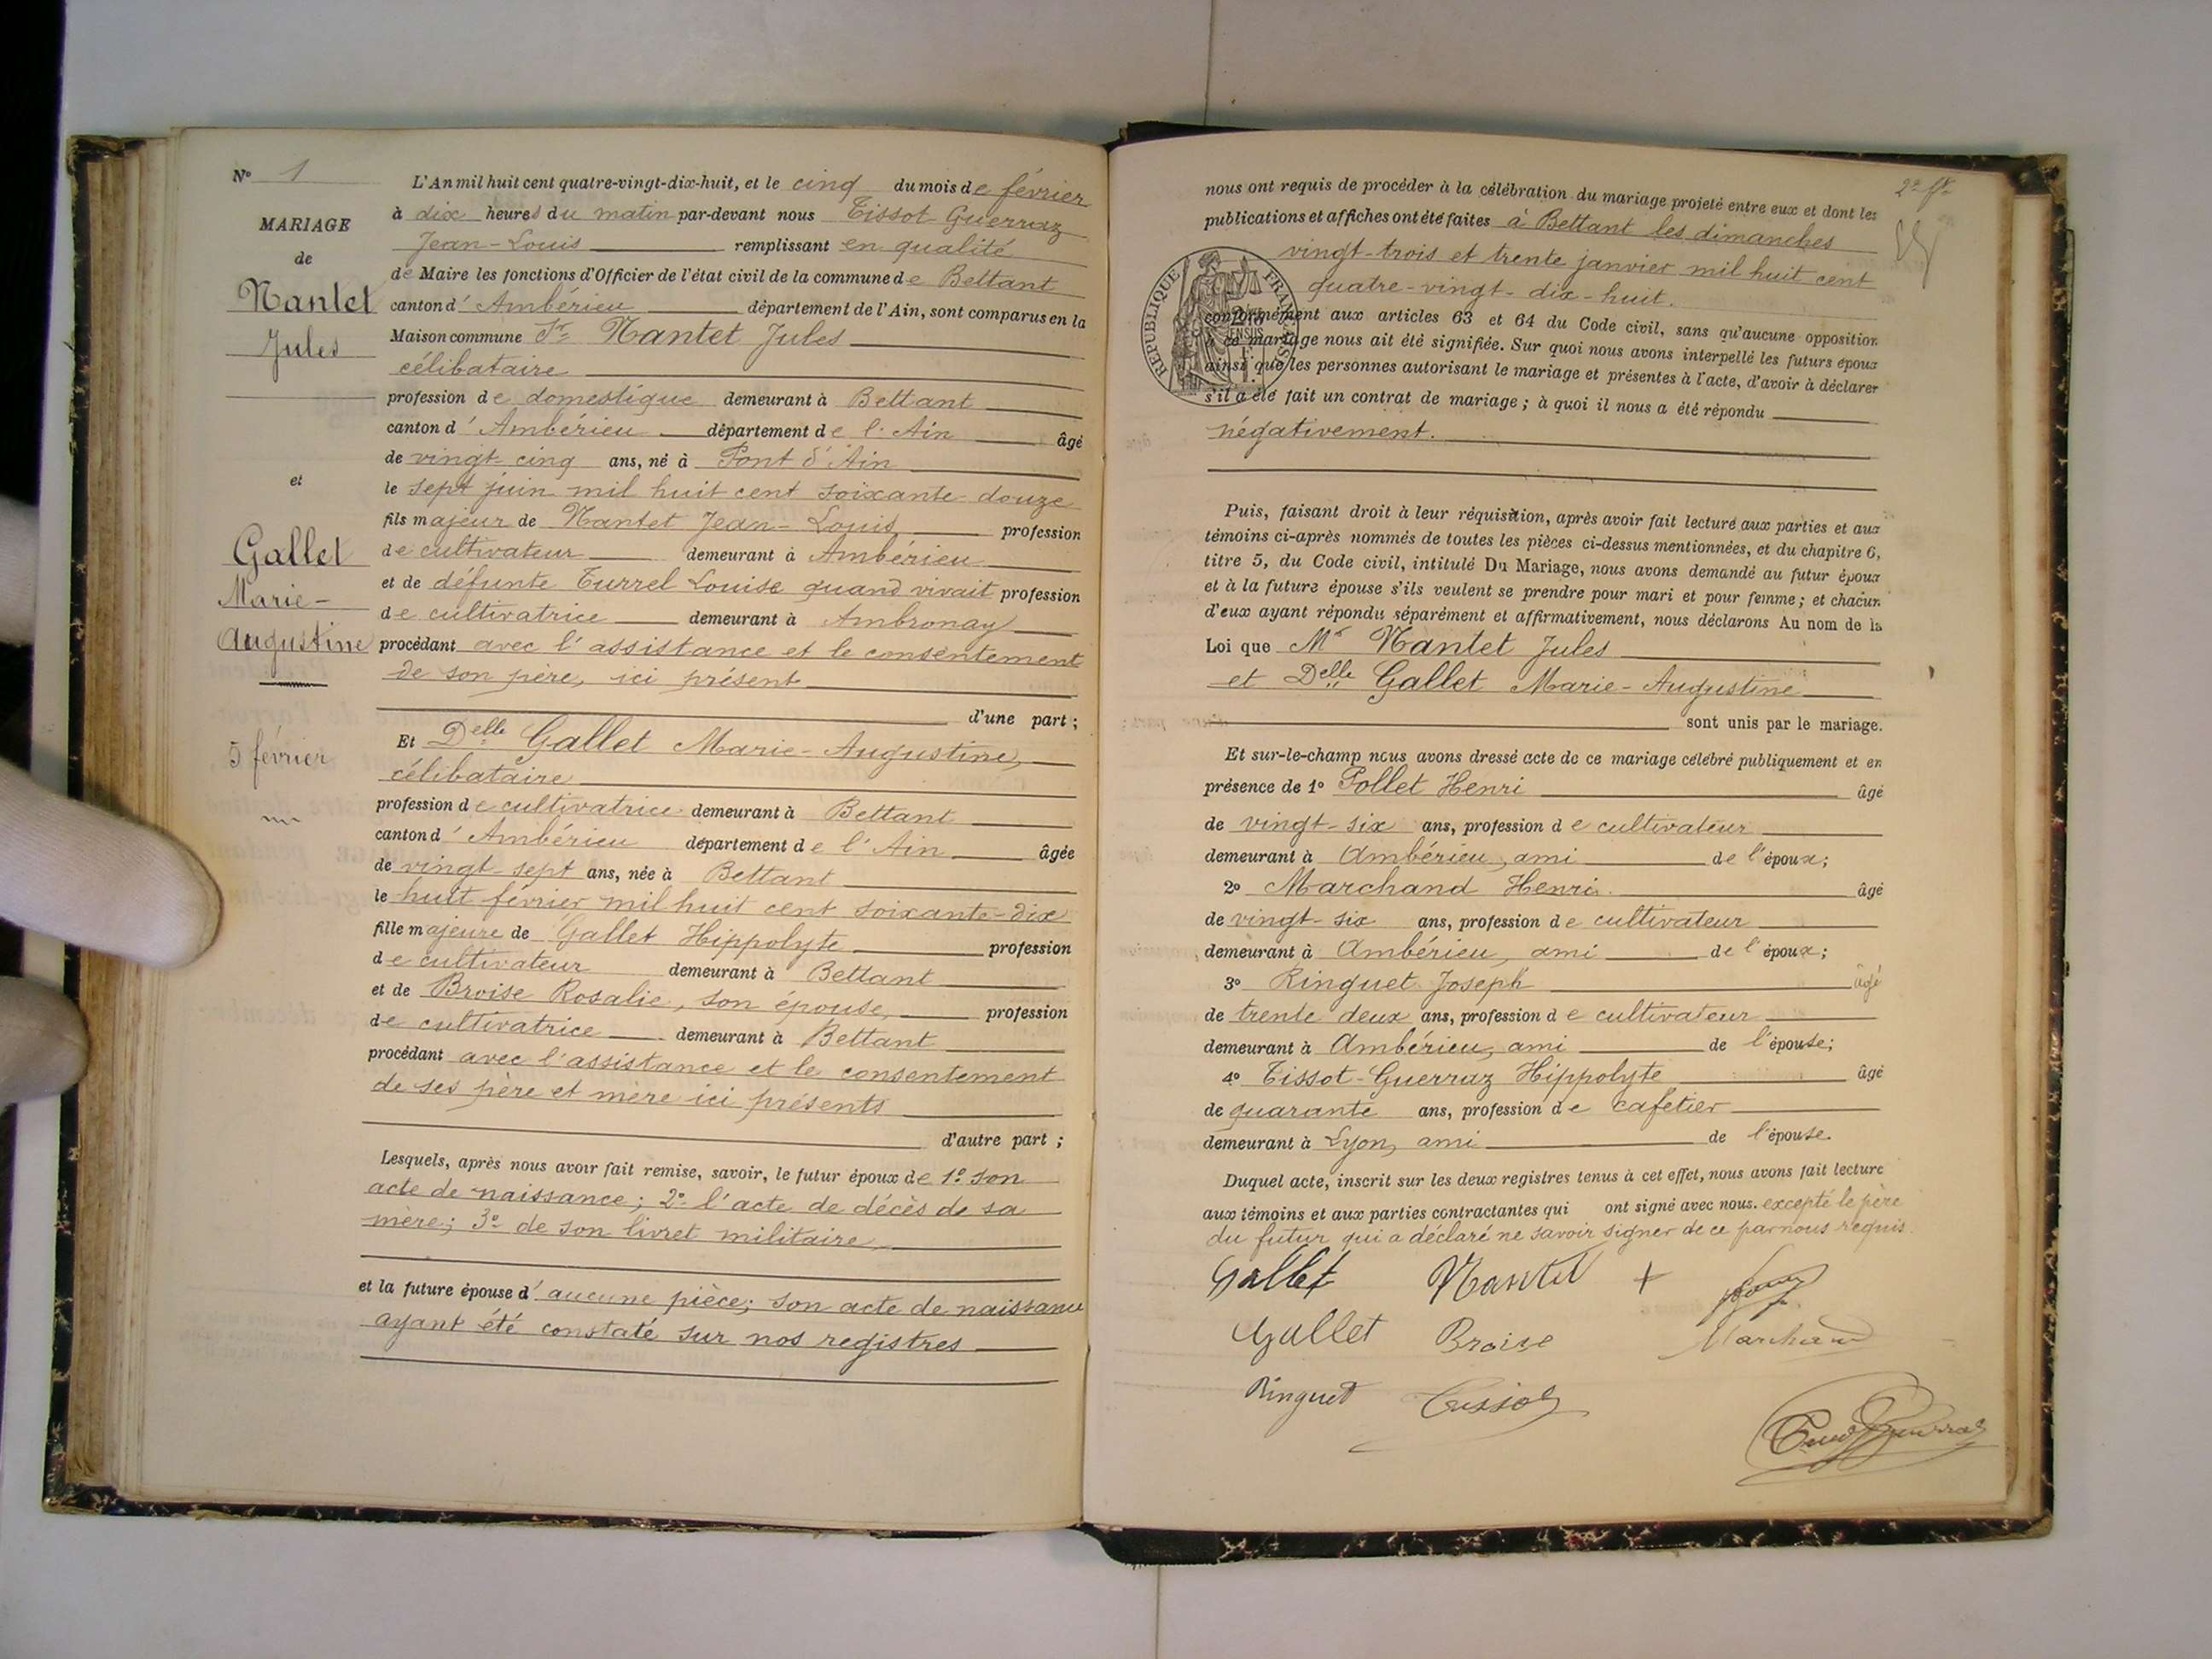 N° 1
MARIAGE
de
Nantet
Jules
et
Gallet
Marie-
Augustine
5 février
L'An mil huit cent quatre-vingt-dix-huit, et le cinq du mois de février
à dix heures du matin par-devant nous Tissot-Guerraz
Jean-Louis remplissant en qualité
de Maire les fonctions d'Officier de l'état civil de la commune de Bettant
canton d'Ambérieu département de l'Ain, sont comparus en la
Maison commune Sr Nantet Jules
célibataire
profession de domestique demeurant à Bettant
canton d'Ambérieu département de l'Ain âgé
de vingt-cinq ans, né à Pont d'Ain
le sept juin mil huit cent soixante-douze
fils majeur de Nantet Jean-Louis profession
de cultivateur demeurant à Ambérieu
et de défunte Turrel Louise quand vivait profession
de cultivatrice demeurant à Ambronay
procédant avec l'assistance et le consentement
de son père, ici présent
d'une part ;
Et Delle Gallet Marie-Augustine,
célibataire
profession de cultivatrice demeurant à Bettant
canton d'Ambérieu département de l'Ain âgée
de vingt-sept ans, née à Bettant
le huit février mil huit cent soixante-dix
fille majeure de Gallet Hippolyte profession
de cultivateur demeurant à Bettant
et de Broise Rosalie, son épouse, profession
de cultivatrice demeurant à Bettant
procédant avec l'assistance et le consentement
de ses père et mère ici présents
d'autre part ;
Lesquels, après nous avoir fait remise, savoir, le futur époux de 1° son
acte de naissance ; 2° l'acte de décès de sa
mère ; 3° de son livret militaire,
et la future épouse d'aucune pièce; son acte de naissance
ayant été constaté sur nos registres
nous ont requis de procéder à la célébration du mariage projeté entre eux et dont les
publications et affiches ont été faites à Bettant les dimanches
vingt-trois et trente janvier mil huit cent
quatre-vingt-dix-huit.
RÉPUBLIQUE FRANÇAISE
conformément aux articles 63 et 64 du Code civil, sans qu'aucune opposition
à ce mariage nous ait été signifiée. Sur quoi nous avons interpellé les futurs époux
ainsi que les personnes autorisant le mariage et présentes à l'acte, d'avoir à déclarer
s'il a été fait un contrat de mariage ; à quoi il nous a été répondu
négativement.
Puis, faisant droit à leur réquisition, après avoir fait lecture aux parties et aux
témoins ci-après nommés de toutes les pièces ci-dessus mentionnées, et du chapitre 6,
titre 5, du Code civil, intitulé Du Mariage, nous avons demandé au futur époux
et à la future épouse s'ils veulent se prendre pour mari et pour femme ; et chacun
d'eux ayant répondu séparément et affirmativement, nous déclarons Au nom de la
Loi que Mr Nantet Jules
et Delle Gallet Marie-Augustine
sont unis par le mariage.
Et sur-le-champ nous avons dressé acte de ce mariage célébré publiquement et en
présence de 1° Pollet Henri âgé
de vingt-six ans, profession de cultivateur
demeurant à Ambérieu, ami de l'époux ;
2° Marchand Henri âgé
de vingt-six ans, profession de cultivateur
demeurant à Ambérieu, ami de l'époux ;
3° Ringuet Joseph âgé
de trente deux ans, profession de cultivateur
demeurant à Ambérieu, ami de l'épouse ;
4° Tissot-Guerraz Hippolyte âgé
de quarante ans, profession de cafetier
demeurant à Lyon, ami de l'épouse.
Duquel acte, inscrit sur les deux registres tenus à cet effet, nous avons fait lecture
aux témoins et aux parties contractantes qui ont signé avec nous. excepté le père
du futur qui a déclaré ne savoir signer de ce par nous requis.
Gallet Nantet +
Gallet Broise Marchand
Ringuet Tissot